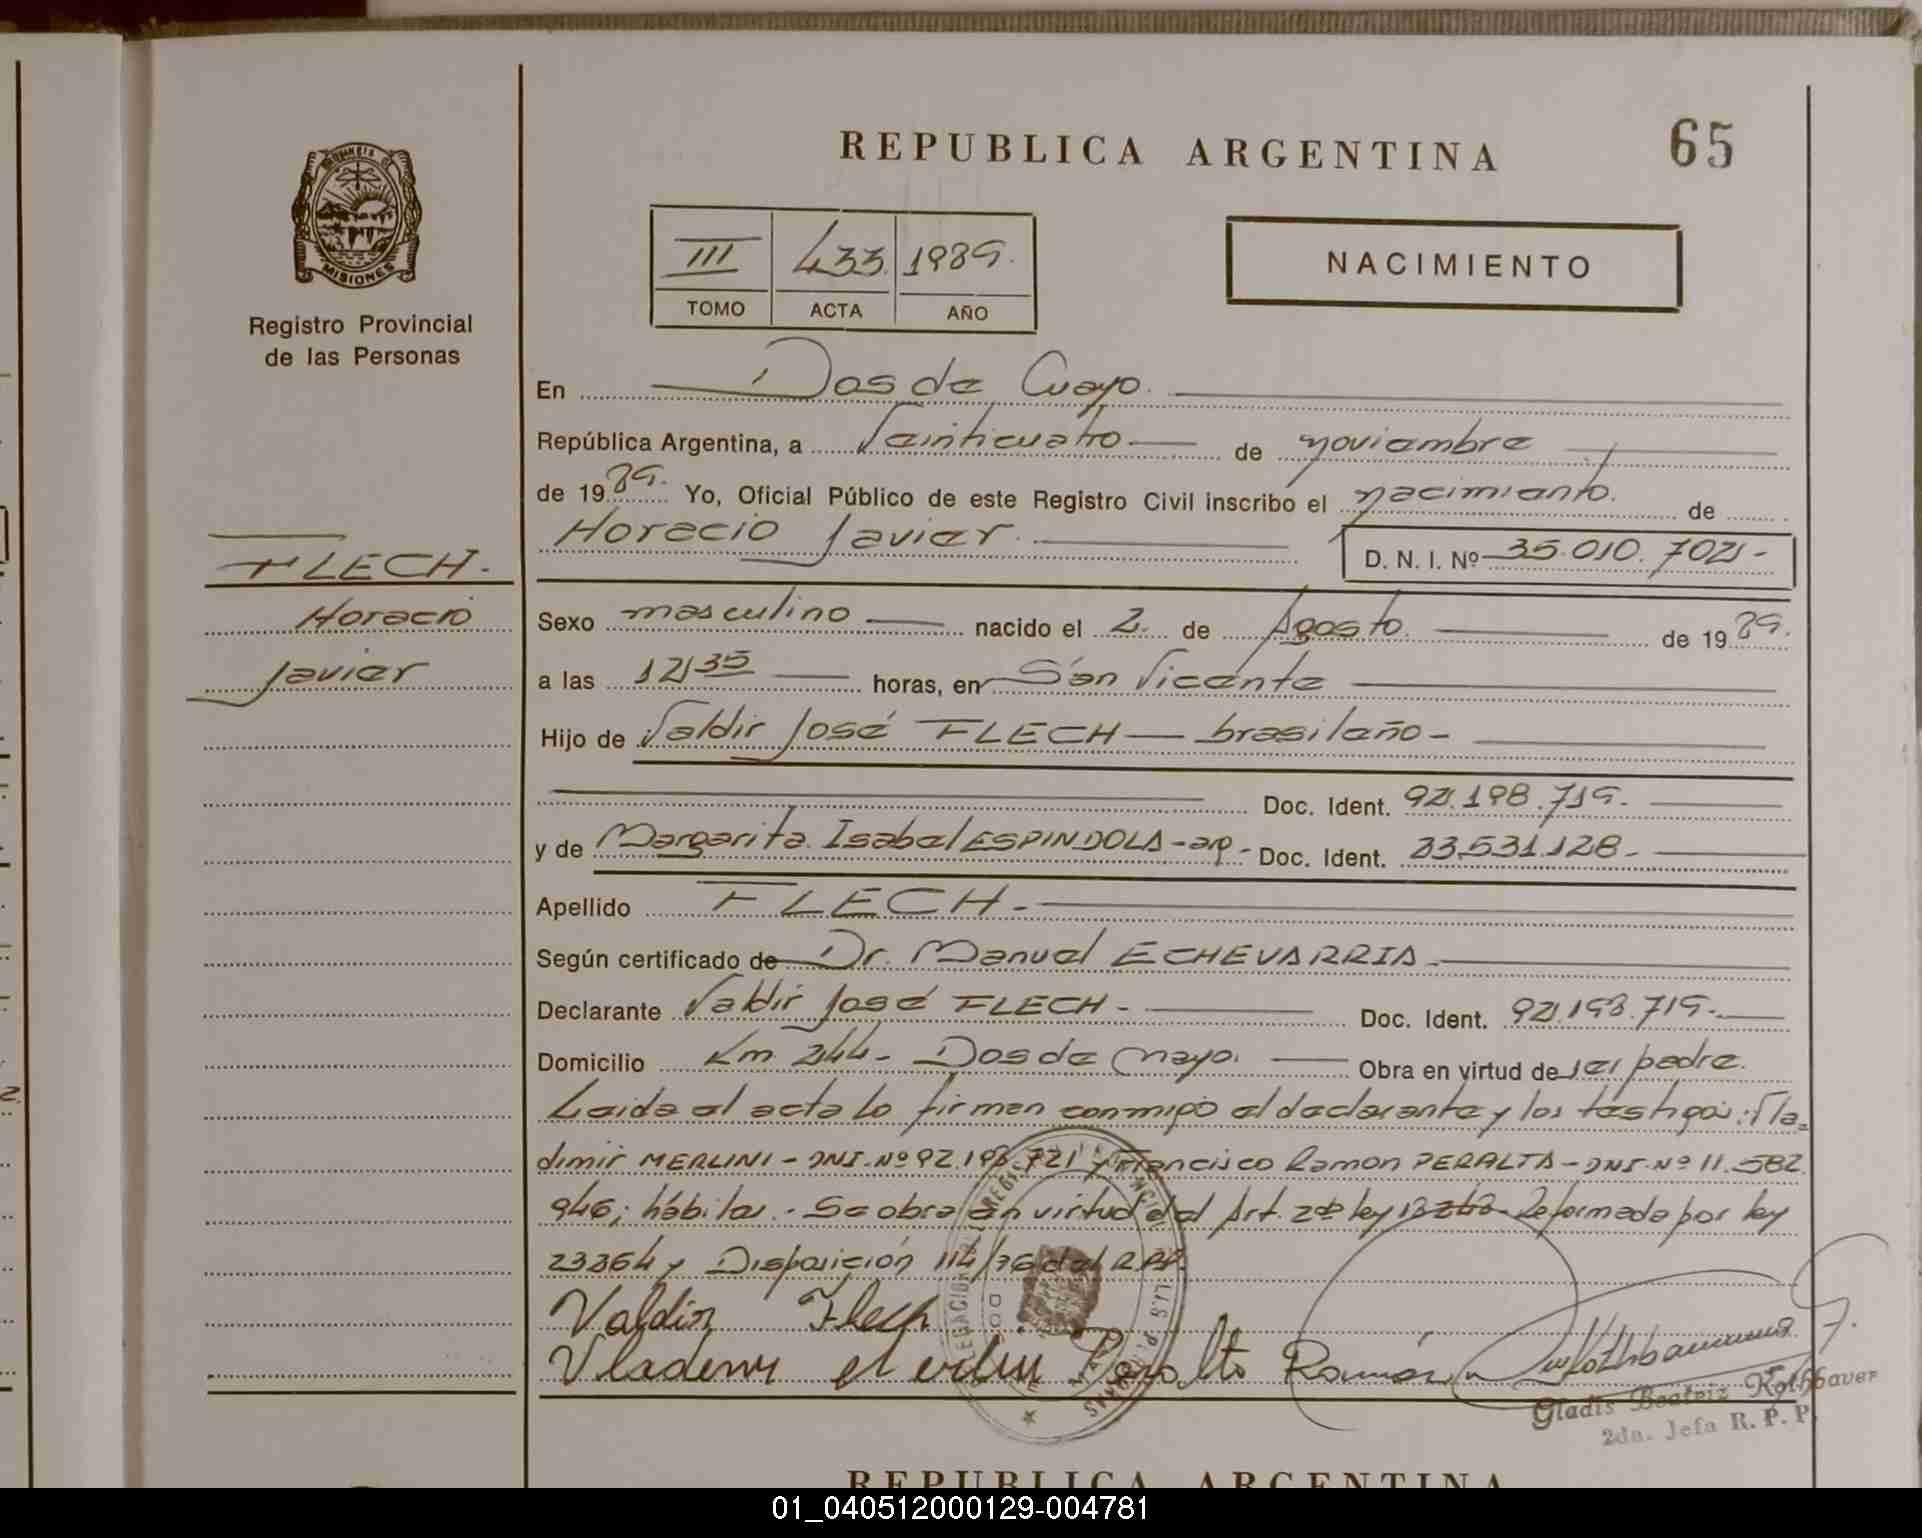 REPUBLICA ARGENTINA
65
PROVINCIA DE
MISIONES
Registro Provincial
de las Personas
III 433 1989.
TOMO ACTA AÑO
NACIMIENTO
En Dos de Mayo.
República Argentina, a Veinticuatro de noviembre
de 1989. Yo, Oficial Público de este Registro Civil inscribo el nacimiento. de
Horacio Javier. D. N. I. Nº 35.010.702-
FLECH.
Horacio
Javier
Sexo masculino nacido el 2. de Agosto. de 1989.
a las 12,35 horas, en San Vicente
Hijo de Valdir José FLECH — brasileño -
Doc. Ident. 92.198.719.
y de Margarita Isabel ESPINDOLA - arg - Doc. Ident. 23.531.128-
Apellido FLECH.
Según certificado de Dr. Manuel ECHEVARRIA.
Declarante Valdir José FLECH - Doc. Ident. 92.198.719.
Domicilio Km 244 - Dos de Mayo. Obra en virtud de ser padre.
Leida el acta lo firman conmigo el declarante y los testigos: Vla-
dimir MERLINI - DNI. Nº 92.198.721 y Francisco Ramon PERALTA - DNI. Nº 11.582.
946; hábiles. - Se obra en virtud del Art. 2 de ley Reformada por ley
23364 y Disposición 114/76 del R.P.P.
Valdir Flech
Peralta Ramón
Gladis Beatriz Kothbaver
2da. Jefa R. P. P.
REPUBLICA ARGENTINA
01_040512000129-004781